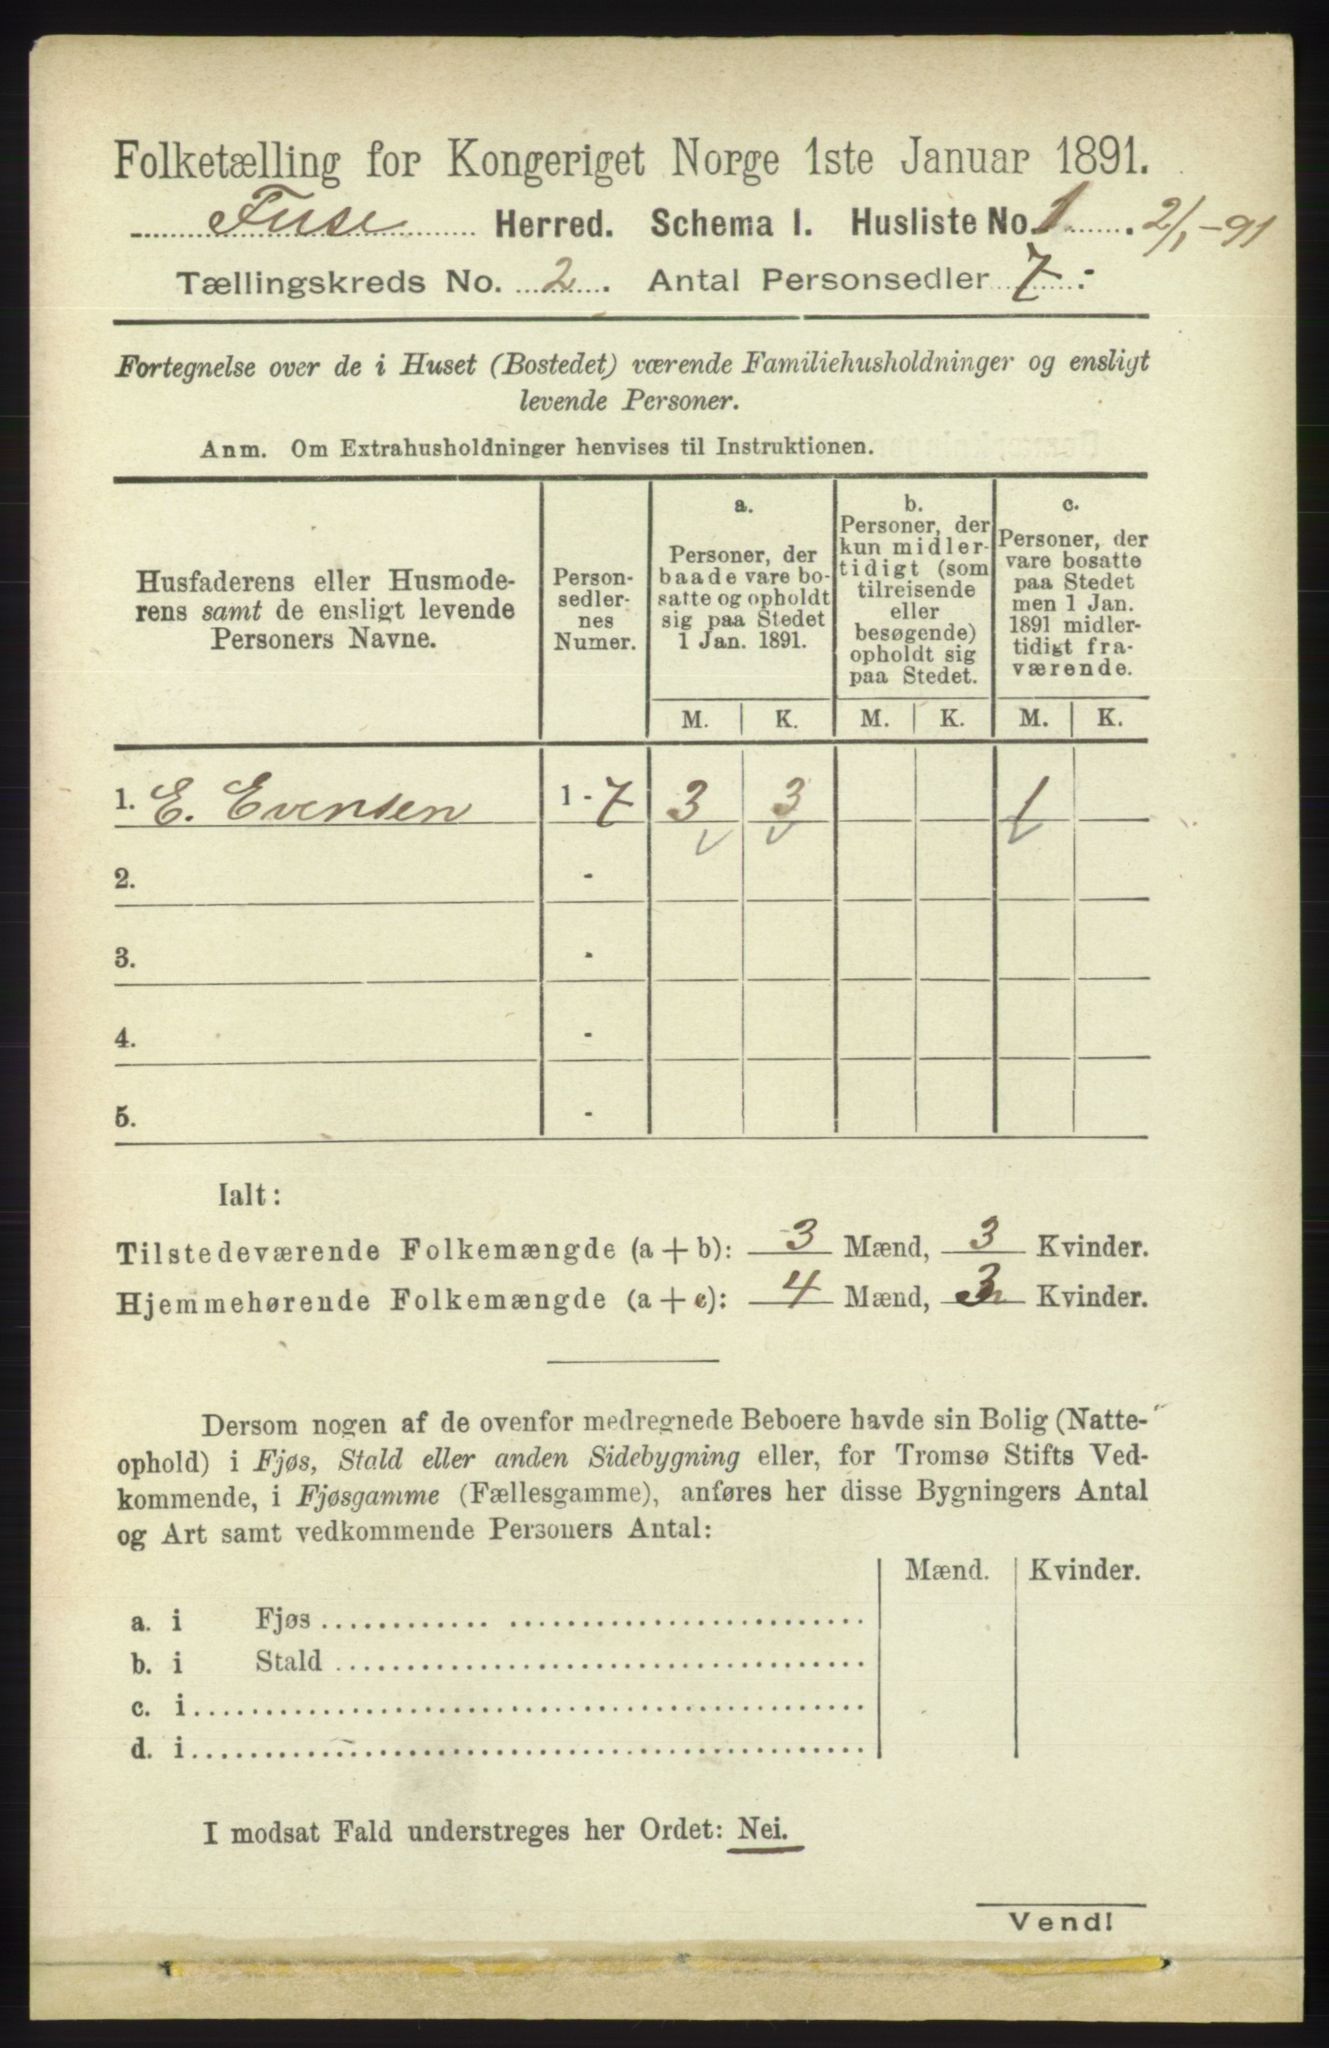 Folketælling for Kongeriget Norge 1ste Januar 1891.
Fuse Herred. Schema I. Husliste No. 1. 2/1-91
Tællingskreds No. 2. Antal Personsedler 7.
Fortegnelse over de i Huset (Bostedet) værende Familiehusholdninger og ensligt
levende Personer.
Anm. Om Extrahusholdninger henvises til Instruktionen.
Husfaderens eller Husmode-
rens samt de ensligt levende
Personers Navne.
Person-
sedler-
nes
Numer.
a.
Personer, der
baade vare bo-
satte og opholdt
sig paa Stedet
1 Jan. 1891.
b.
Personer, der
kun midler-
tidigt (som
tilreisende
eller
besøgende)
opholdt sig
paa Stedet.
c.
Personer, der
vare bosatte
paa Stedet
men 1 Jan.
1891 midler-
tidigt fra-
værende.
M. K. M. K. M. K.
1. E. Evensen 1 - 7 3 3 1
2. -
3. -
4. -
5. -
Ialt:
Tilstedeværende Folkemængde (a + b): 3 Mænd, 3 Kvinder.
Hjemmehørende Folkemængde (a + c): 4 Mænd, 3 Kvinder.
Dersom nogen af de ovenfor medregnede Beboere havde sin Bolig (Natte-
ophold) i Fjøs, Stald eller anden Sidebygning eller, for Tromsø Stifts Ved-
kommende, i Fjøsgamme (Fællesgamme), anføres her disse Bygningers Antal
og Art samt vedkommende Personers Antal:
Mænd. Kvinder.
a. i Fjøs
b. i Stald
c. i
d. i
I modsat Fald understreges her Ordet: Nei.
Vend!